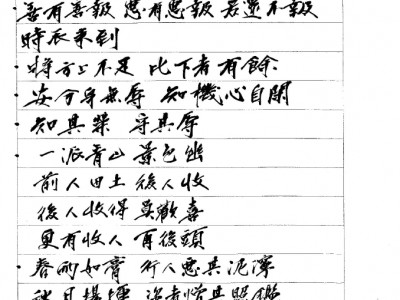 善有善報 惡有惡報 若還不報
時辰未到
將方上不足 比下者有餘
安分身無辱 知機心自閒
知其榮 守其辱
一派青山景色幽
前人田土後人收
後人收得莫歡喜
更有收人再後頭
春雨如膏 行人惡其泥濘
秋月揚輝 盜者憎其照鑑